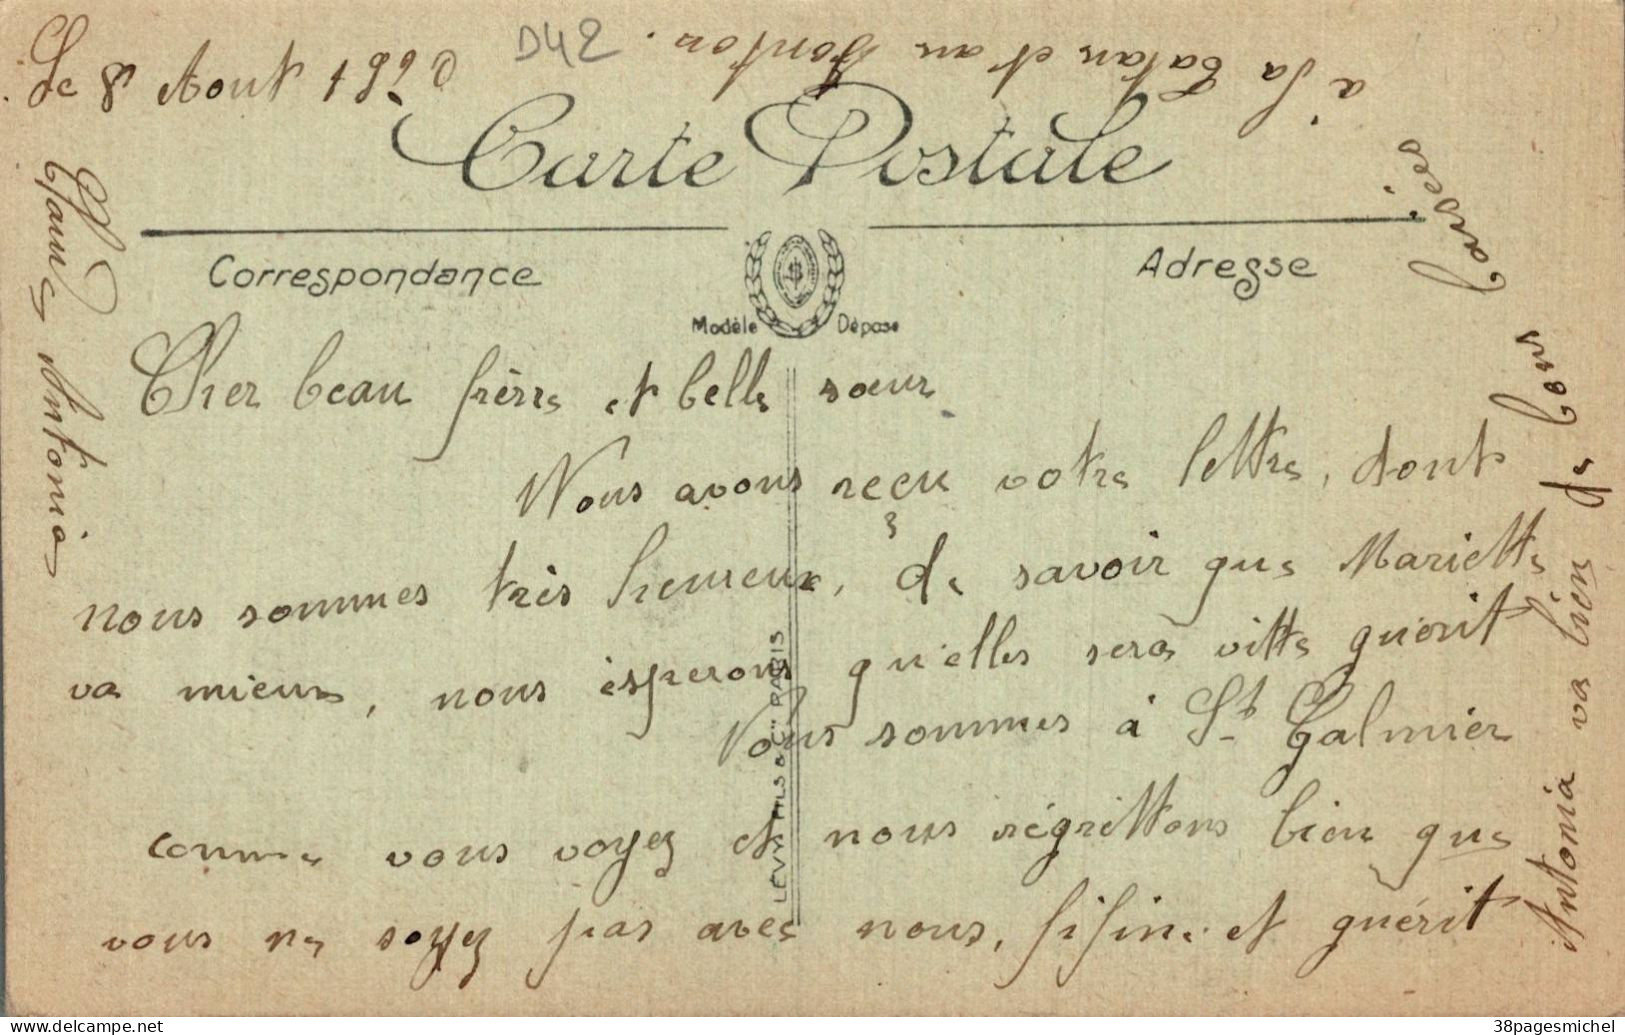 Le 8 Aout 1920
D42
Carte Postale
Correspondance
Adresse
Modèle Déposé
Cher beau frère et belle sœur
Nous avons reçu votre lettre, dont
nous sommes très heureux, de savoir que Mariette
va mieux, nous ésperons qu'elles sera vitte guérit
Nous sommes à St Galmier
comme vous voyez et nous régrettons bien que
vous ne soyez pas avec nous, fifine et guérit
Antonia va bien de bons
baisés
à la tatan et au tonton.
Antonia
LEVY FILS & Cie PARIS
38pagesmichel
www.delcampe.net